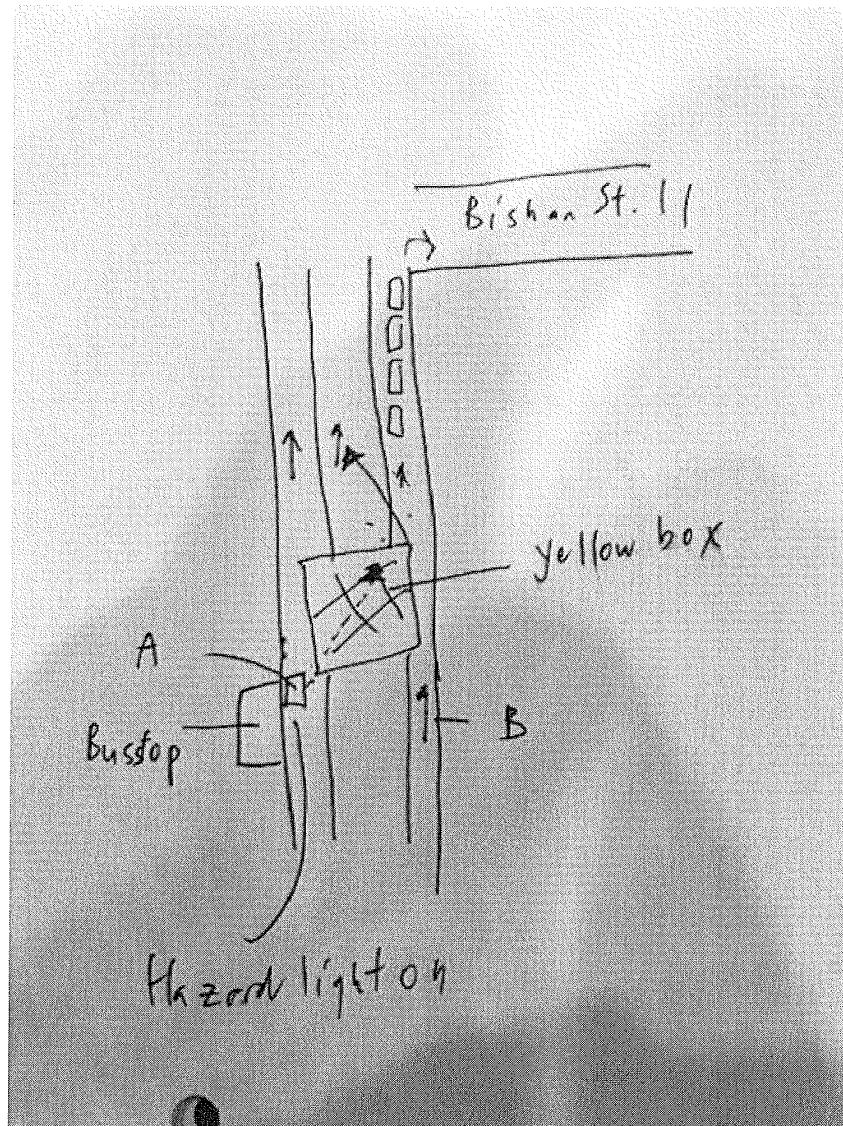 Bishan St. 11
yellow box
A
B
Busstop
Hazard light on